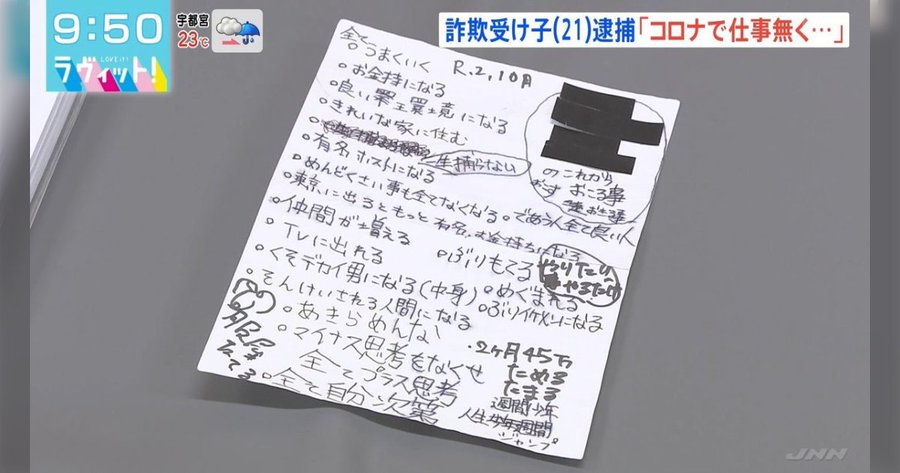 9:50
LOVE it!
ラヴィット!
宇都宮
23℃
詐欺受け子(21)逮捕「コロナで仕事無く…」
全て
R.2,10月
○うまくいく
○お金持になる
○良い環境になる
○きれいな家に住む
一生捕らない
○有名ホストになる
○めんどくさい事も全てなくなる
○であう人全て良い人
○東京に出るともっと有名、お金持ちになる
○仲間が増える
○TVに出れる
○ぶりもてる
○くそデカイ男になる(中身)
○めぐまれる
○そんけいされる人間になる
○ぶりイケメンになる
○あきらめんない
○マイナス思考をなくせ
全てプラス思考
○全て自分次第
のこれから
おこる事
やりたい
やるだけ
・2ヶ月45万
ためる
たまる
週間少年
人生
週間
ジャンプ
JNN